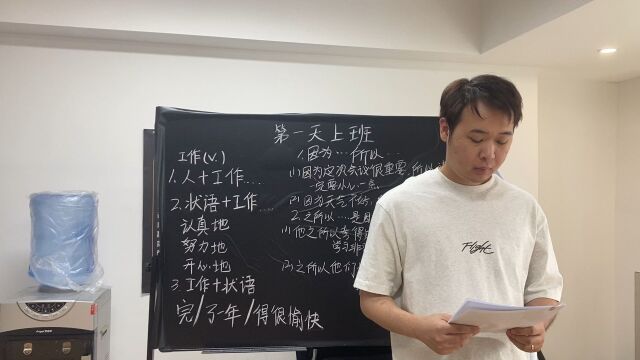 第一天上班
工作(v.)
1.人+工作……
2.状语+工作……
认真地
努力地
开心地
3.工作+状语
完/了一年/得很愉快
1.因为……所以……
(1)因为这次会议很重要,所以
一定要小心一点
(2)因为天气不好,
2.之所以……是因
(1)他之所以考得
学习非
(2)之所以他们
Flight